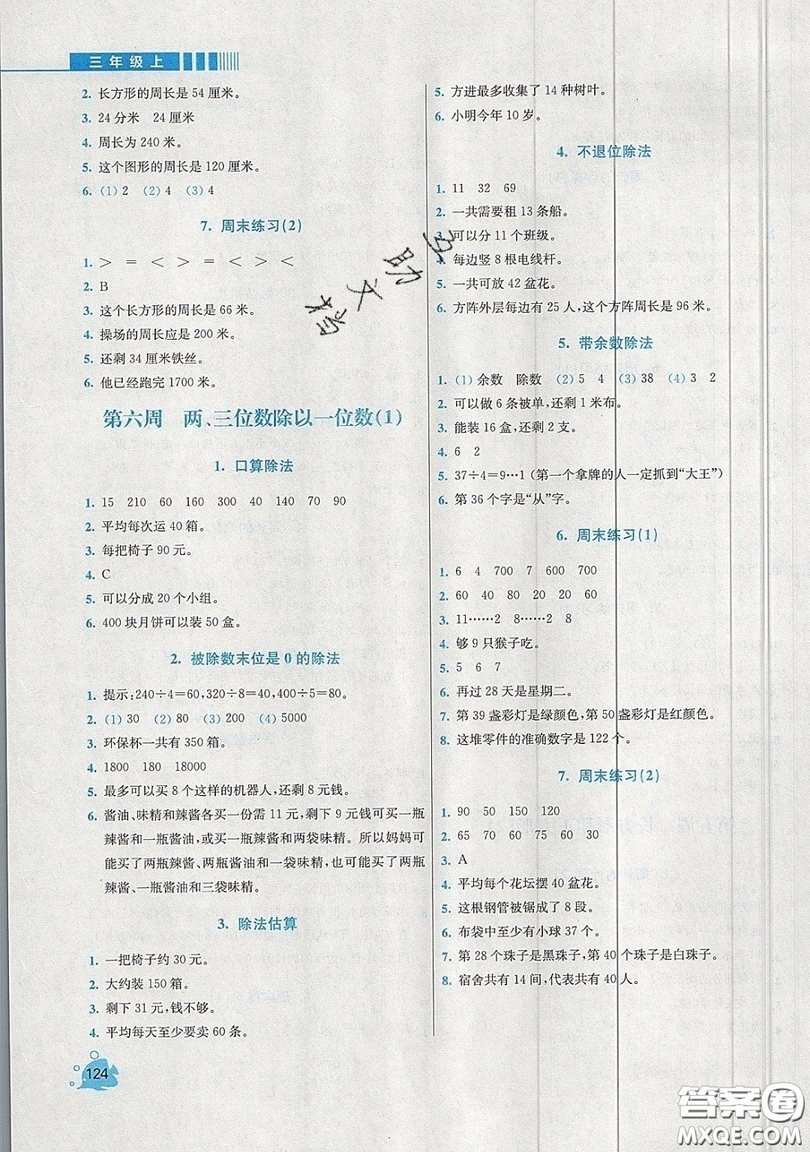 三年级上
2. 长方形的周长是 54 厘米。
3. 24 分米 24 厘米
4. 周长为 240 米。
5. 这个图形的周长是 120 厘米。
6. (1) 2 (2) 4 (3) 4
7. 周末练习(2)
1. > = < > = < > <
2. B
3. 这个长方形的周长是 66 米。
4. 操场的周长应是 200 米。
5. 还剩 34 厘米铁丝。
6. 他已经跑完 1700 米。
第六周 两、三位数除以一位数(1)
1. 口算除法
1. 15 210 60 160 300 40 140 70 90
2. 平均每次运 40 箱。
3. 每把椅子 90 元。
4. C
5. 可以分成 20 个小组。
6. 400 块月饼可以装 50 盒。
2. 被除数末位是 0 的除法
1. 提示:240÷4=60,320÷8=40,400÷5=80。
2. (1) 30 (2) 80 (3) 200 (4) 5000
3. 环保杯一共有 350 箱。
4. 1800 180 18000
5. 最多可以买 8 个这样的机器人，还剩 8 元钱。
6. 酱油、味精和辣酱各买一份需 11 元，剩下 9 元钱可买一瓶
辣酱和一瓶酱油，或买一瓶辣酱和两袋味精。所以妈妈可
能买了两瓶辣酱、两瓶酱油和一袋味精，也可能买了两瓶
辣酱、一瓶酱油和三袋味精。
3. 除法估算
1. 一把椅子约 30 元。
2. 大约装 150 箱。
3. 剩下 31 元，钱不够。
4. 平均每天至少要卖 60 条。
5. 方进最多收集了 14 种树叶。
6. 小明今年 10 岁。
4. 不退位除法
1. 11 32 69
2. 一共需要租 13 条船。
3. 可以分 11 个班级。
4. 每边竖 8 根电线杆。
5. 一共可放 42 盆花。
6. 方阵外层每边有 25 人，这个方阵周长是 96 米。
5. 带余数除法
1. (1) 余数 除数 (2) 5 4 (3) 38 (4) 3 2
2. 可以做 6 条被单，还剩 1 米布。
3. 能装 16 盒，还剩 2 支。
4. 6 2
5. 37÷4=9…1（第一个拿牌的人一定抓到“大王”）
6. 第 36 个字是“从”字。
6. 周末练习(1)
1. 6 4 700 7 600 700
2. 60 40 80 20 20 60
3. 11……2 8 11……2 8
4. 够 9 只猴子吃。
5. 5 6 7
6. 再过 28 天是星期二。
7. 第 39 盏彩灯是绿颜色，第 50 盏彩灯是红颜色。
8. 这堆零件的准确数字是 122 个。
7. 周末练习(2)
1. 90 50 150 120
2. 65 70 60 75 60 30
3. A
4. 平均每个花坛摆 40 盆花。
5. 这根钢管被锯成了 8 段。
6. 布袋中至少有小球 37 个。
7. 第 28 个珠子是黑珠子，第 40 个珠子是白珠子。
8. 宿舍共有 14 间，代表共有 40 人。
124
答案圈
MXQE.COM